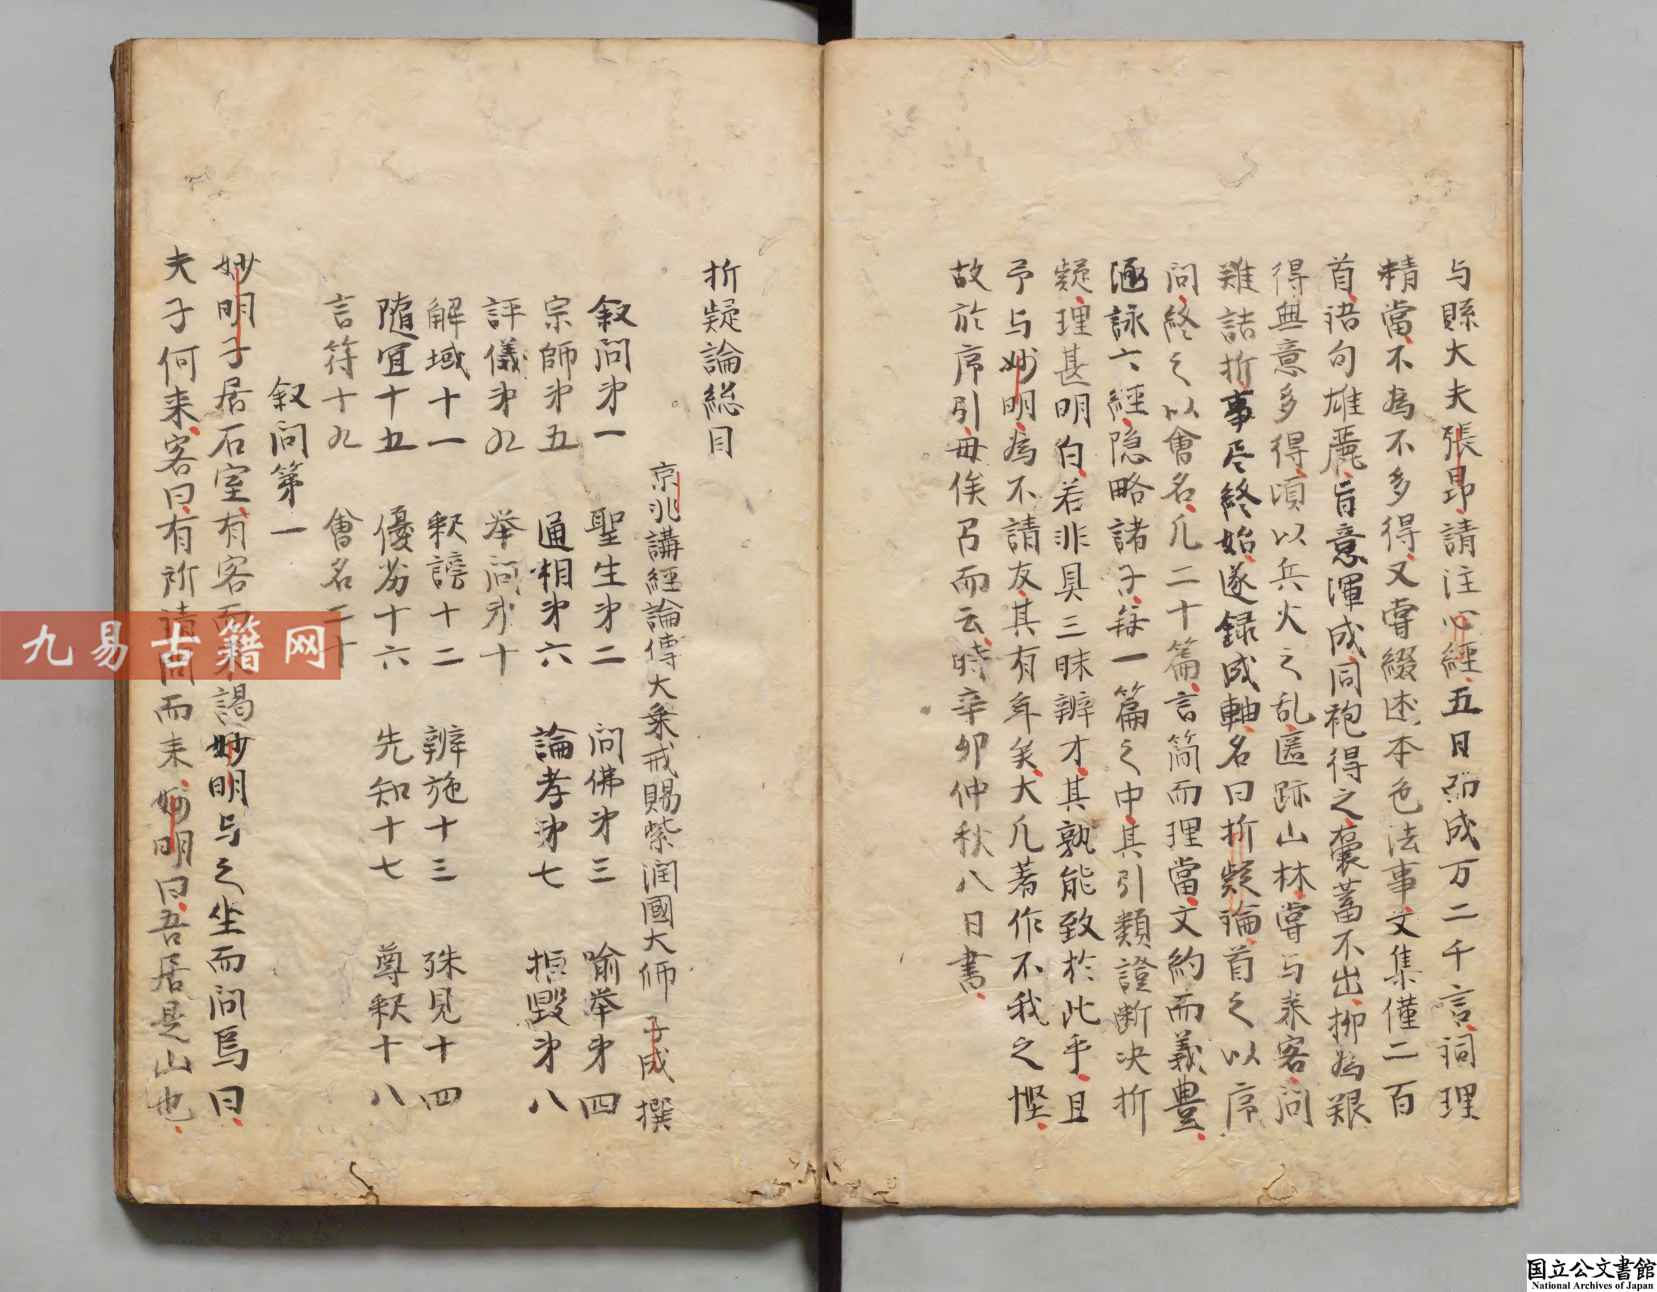 与縣大夫張昂請注心經五日而成万二千言詞理
精當不為不多得又嘗綴述本色法事文集僅二百
首語句雄麗旨意渾成同袍得之囊蓄不出抑為艱
得典意多得頃以兵火之乱匿跡山林嘗与来客問
難詰折事尽終始遂録成軸名曰折疑論首之以序
問終之以會名凡二十篇言簡而理當文約而義豊
涵詠六經隐略諸子每一篇之中其引類證断决折
疑理甚明白若非具三昧辨才其孰能致於此乎且
予与妙明為不請友其有年矣大凡著作不我之慳
故於序引毋俟丐而云時辛卯仲秋八日書
折疑論総目
京兆講經論傳大乗戒賜紫潤國大師 子成 撰
叙问㐧一 聖生㐧二 问佛㐧三 喻举㐧四
宗師㐧五 通相㐧六 論孝㐧七 拒毀㐧八
評儀㐧九 举问㐧十
解域十一 釈謗十二 辨施十三 殊見十四
随宜十五 優劣十六 先知十七 尊釈十八
言符十九 會名二十
叙问第一
妙明子居石室有客而来謁妙明与之坐而问焉曰
夫子何来客曰有所請问而来妙明曰吾居是山也
九易古籍网
国立公文書館
National Archives of Japan